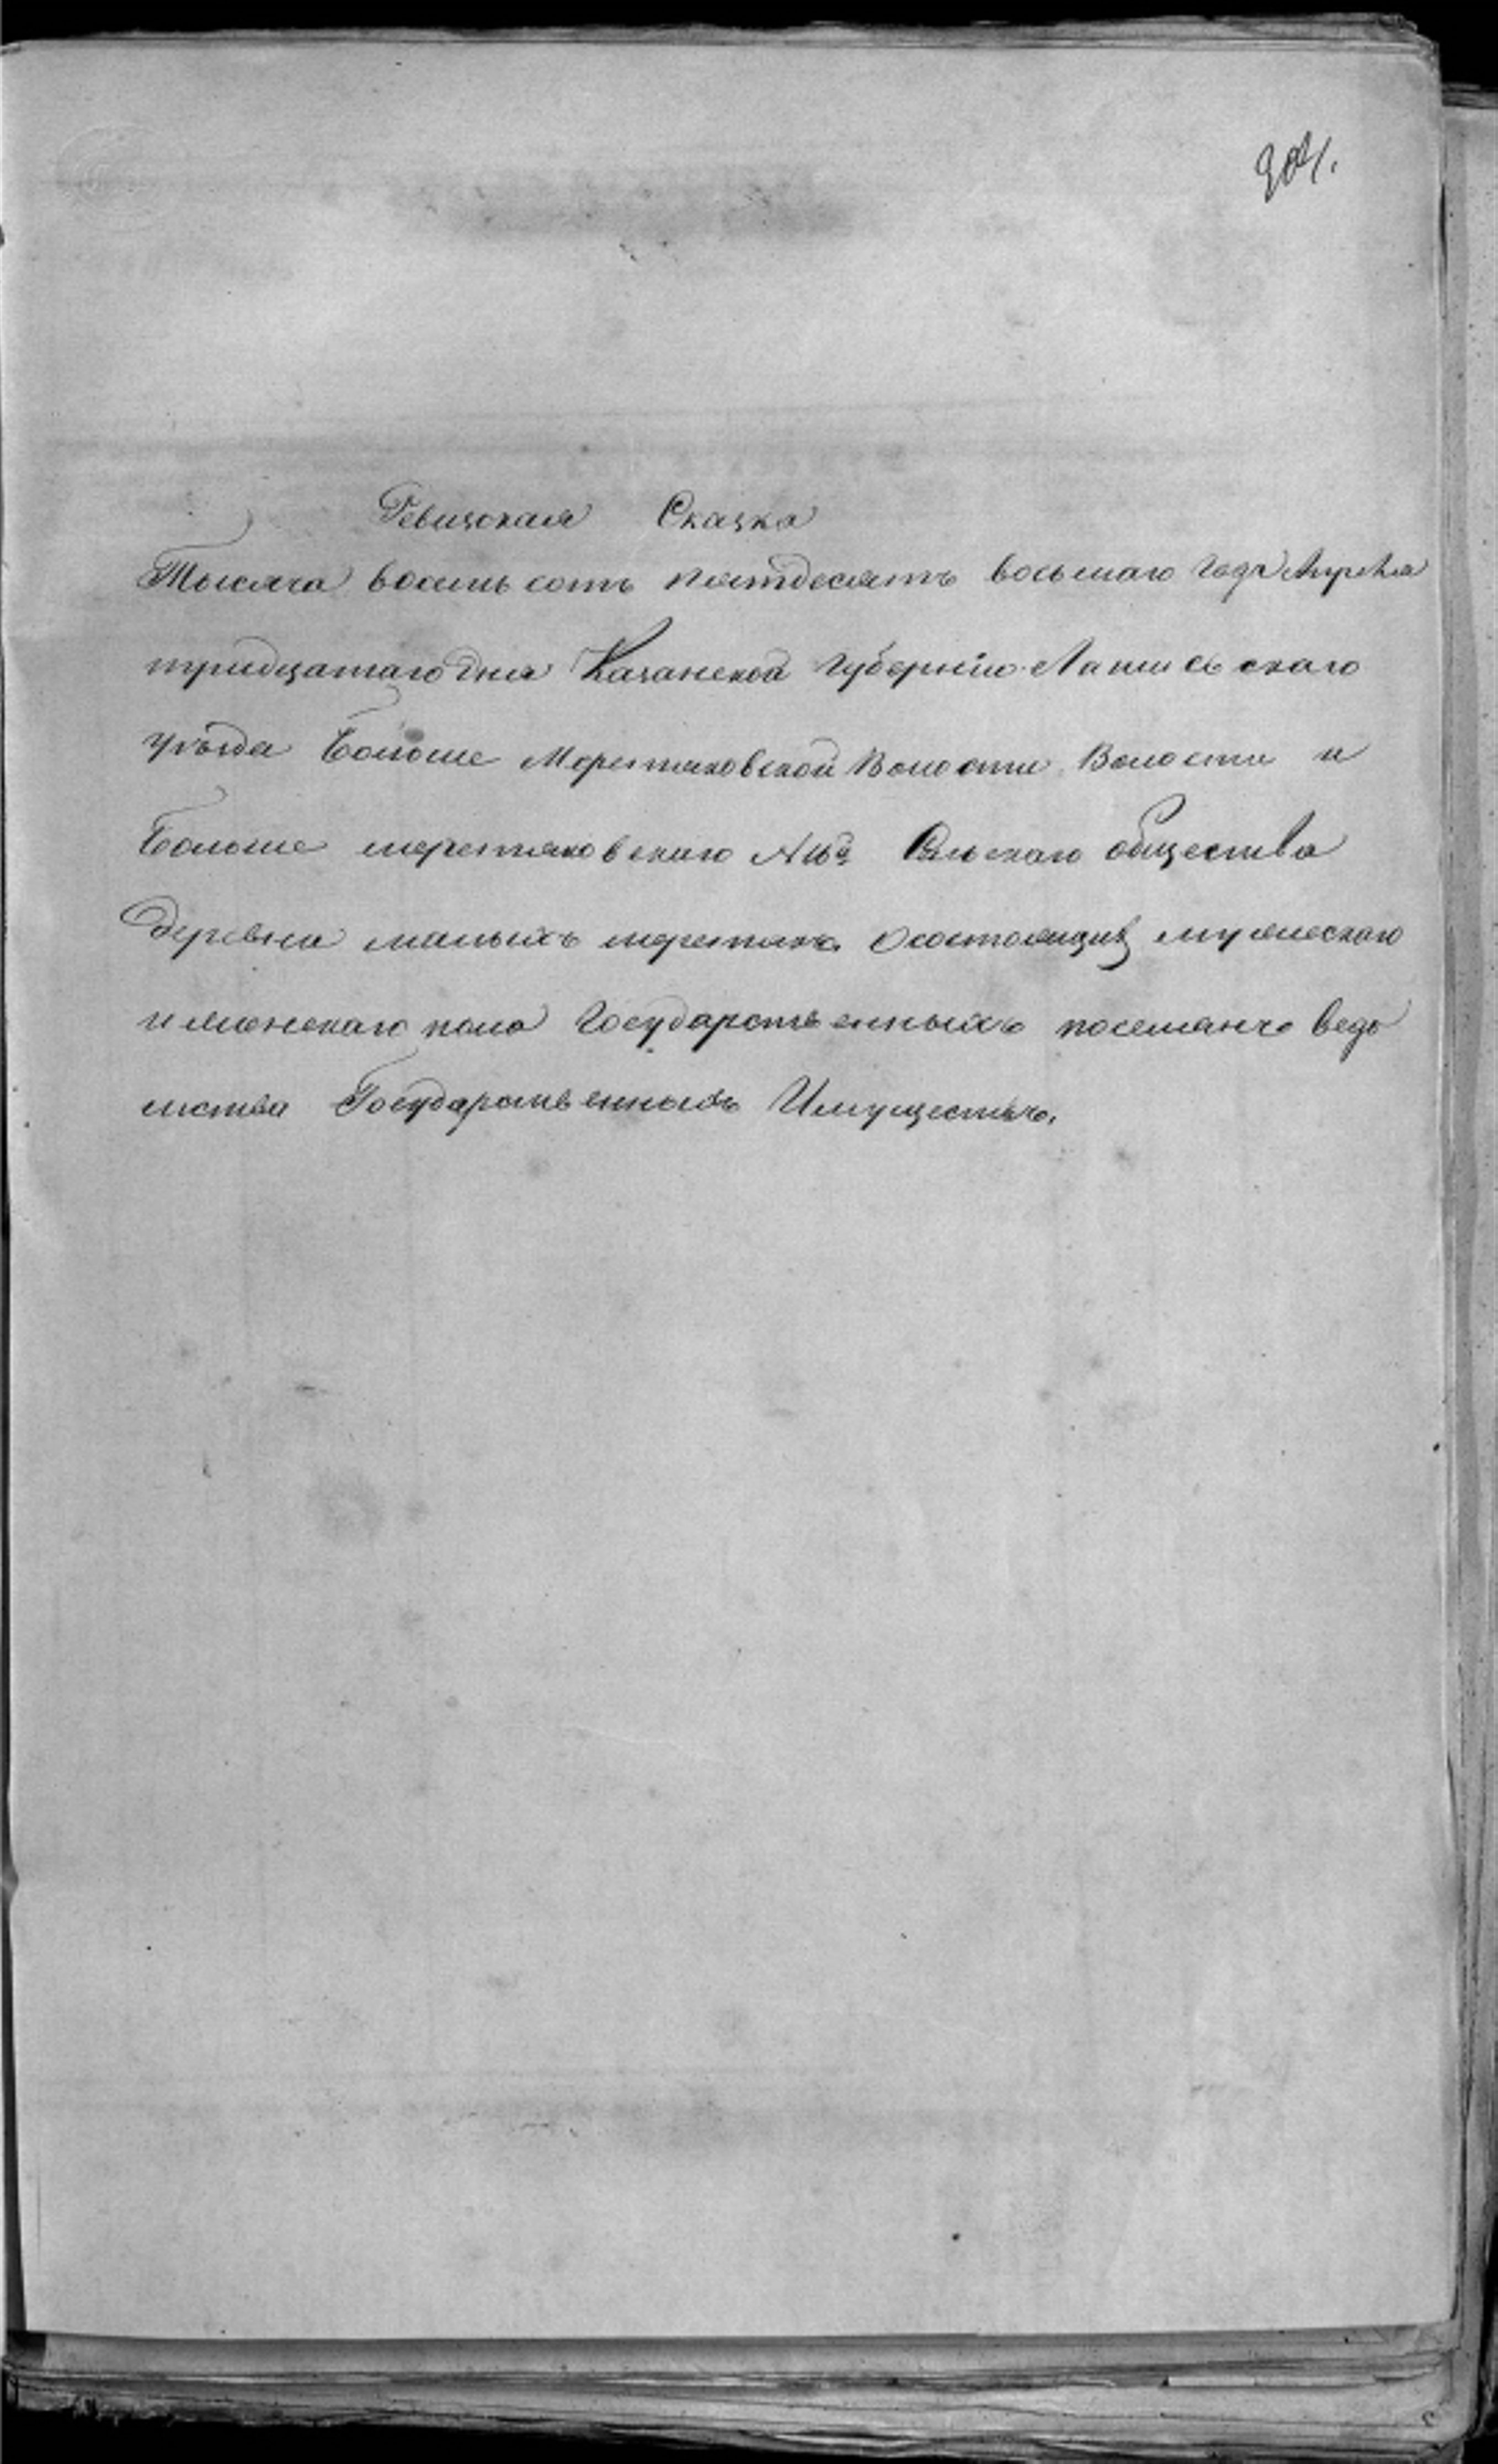 204.
Ревизская Сказка
Тысяча восемь сотъ пятдесятъ восьмаго года Апреля
тридцатаго дня Казанской губернiи Лаишевскаго
уѣзда Больше Меретяковской Волости Волости и
Больше меретяковскаго Сельскаго общества
деревни малыхъ меретякъ о состоящихъ мужескаго
и женскаго пола Государственныхъ поселянъ ведо
мства Государственныхъ Имуществъ.